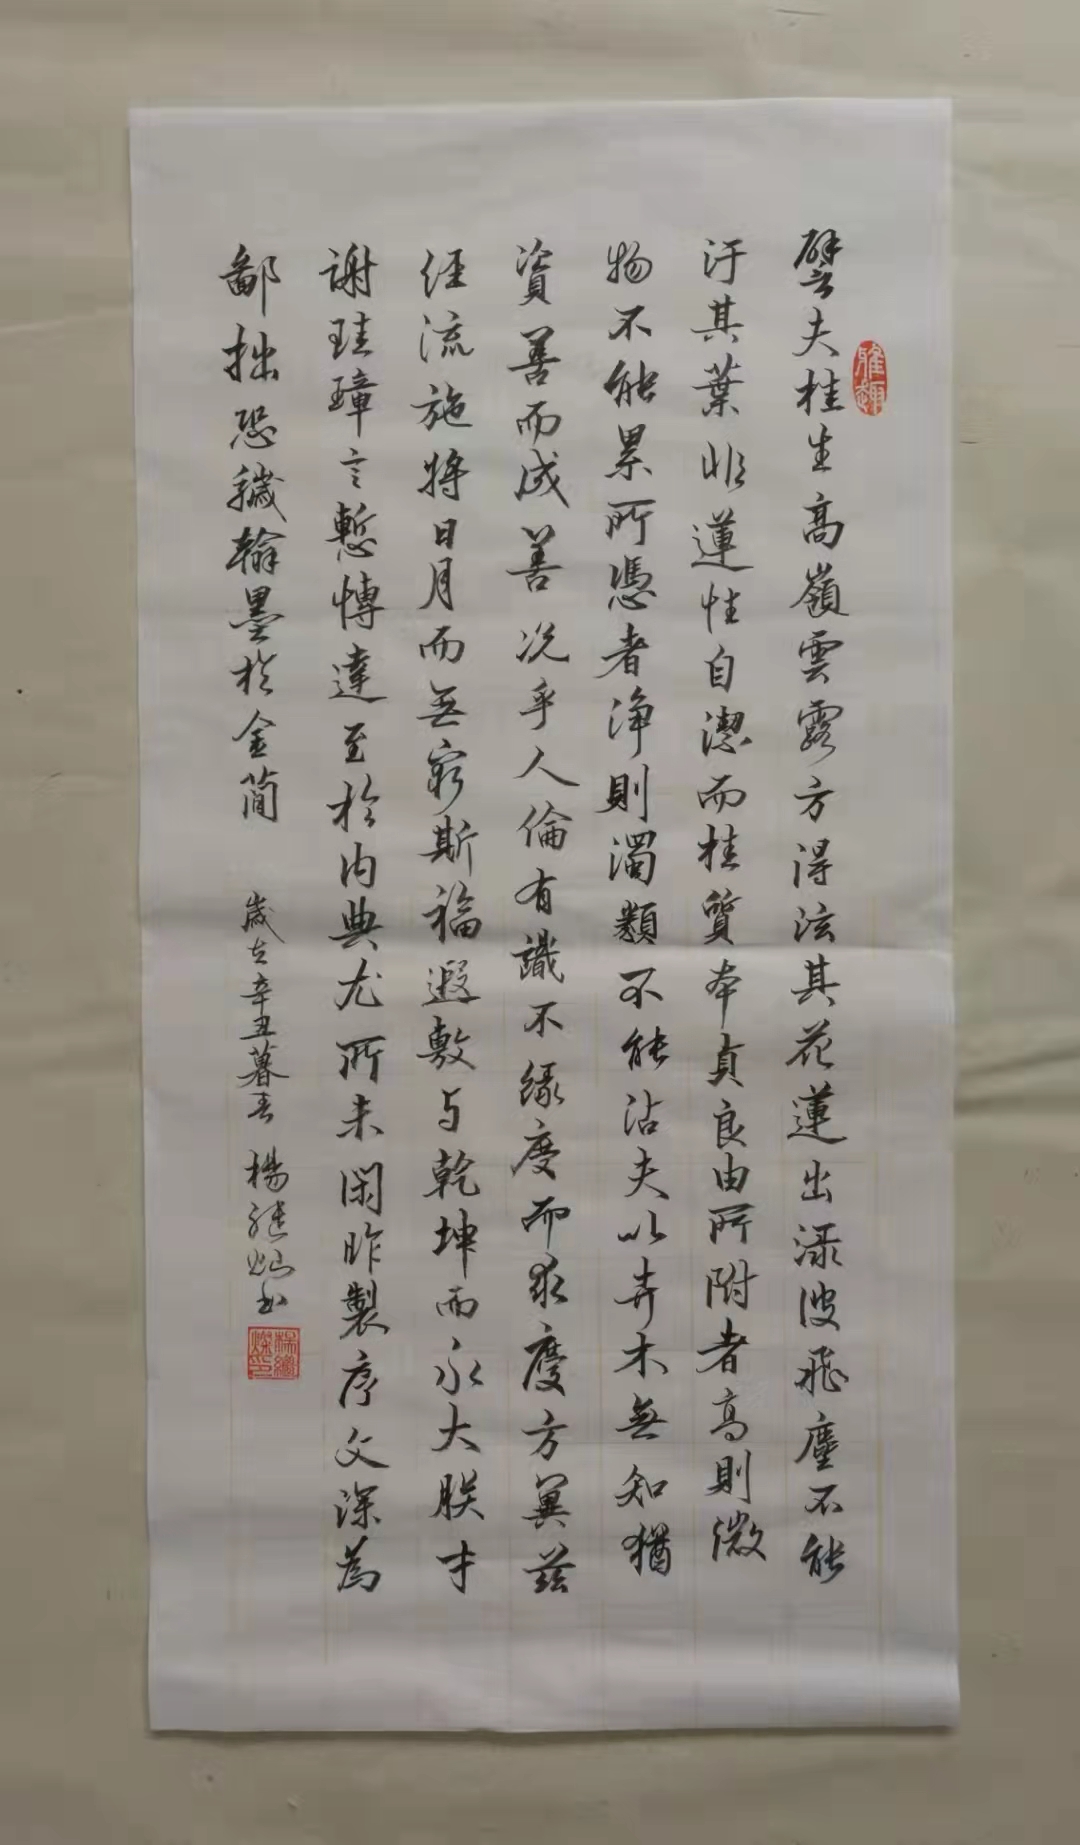 譬夫桂生高嶺雲露方得泫其花蓮出淥波飛塵不能
汙其葉非蓮性自潔而桂質本貞良由所附者高則微
物不能累所憑者浄則濁類不能沾夫以卉木無知猶
資善而成善况乎人倫有識不緣慶而求慶方冀兹
经流施将日月而无窮斯福遐敷与乾坤而永大朕才
謝珪璋言慙博達至於内典尤所未閑昨製序文深為
鄙拙恐穢翰墨於金簡
歲在辛丑暮春 楊继灿书
雅趣
楊繼燦印